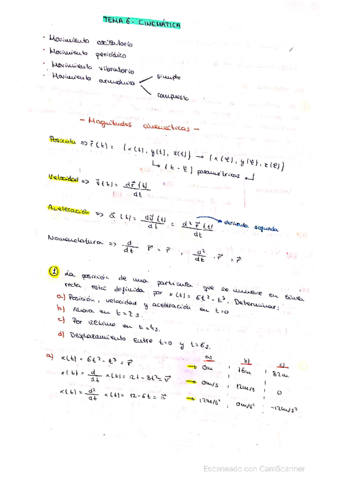 TEMA 6 - CINEMÁTICA
· Movimiento oscilatorio
· Movimiento periódico
· Movimiento vibratorio
· Movimiento armónico
simple
compuesto
- Magnitudes cinemáticas -
Posición => r(t) = {x(t), y(t), z(t)} → {x(φ), y(φ), z(φ)}
↳ (t - φ) paramétricas
Velocidad => v(t) = dr(t)/dt
Aceleración => a(t) = dv(t)/dt = d²r(t)/dt → derivada segunda
Nomenclatura => d/dt r = ṙ , d²/dt · r = r̈
① La posición de una partícula que se mueve en línea
recta está definida por x(t) = 6t² - t³. Determinar:
a) Posición, velocidad y aceleración en t=0
b) Ahora en t=2s.
c) Por último en t=4s.
d) Desplazamiento entre t=0 y t=6s.
a) x(t) = 6t² - t³ = r
x(t) = d/dt x(t) = 12t - 3t² = v
x(t) = d²/dt x(t) = 12 - 6t = a
a) b) c)
→ 0m ; 16m ; 32m
→ 0m/s ; 12m/s ; 0
→ 12m/s² ; 0m/s² ; -12m/s²
Escaneado con CamScanner